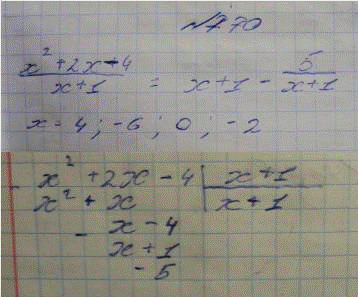 №770
x² + 2x - 4 / x + 1 = x + 1 - 5 / x + 1
x = 4 ; -6 ; 0 ; -2
- x² + 2x - 4 | x + 1
x² + x | x + 1
- x - 4
x + 1
- 5